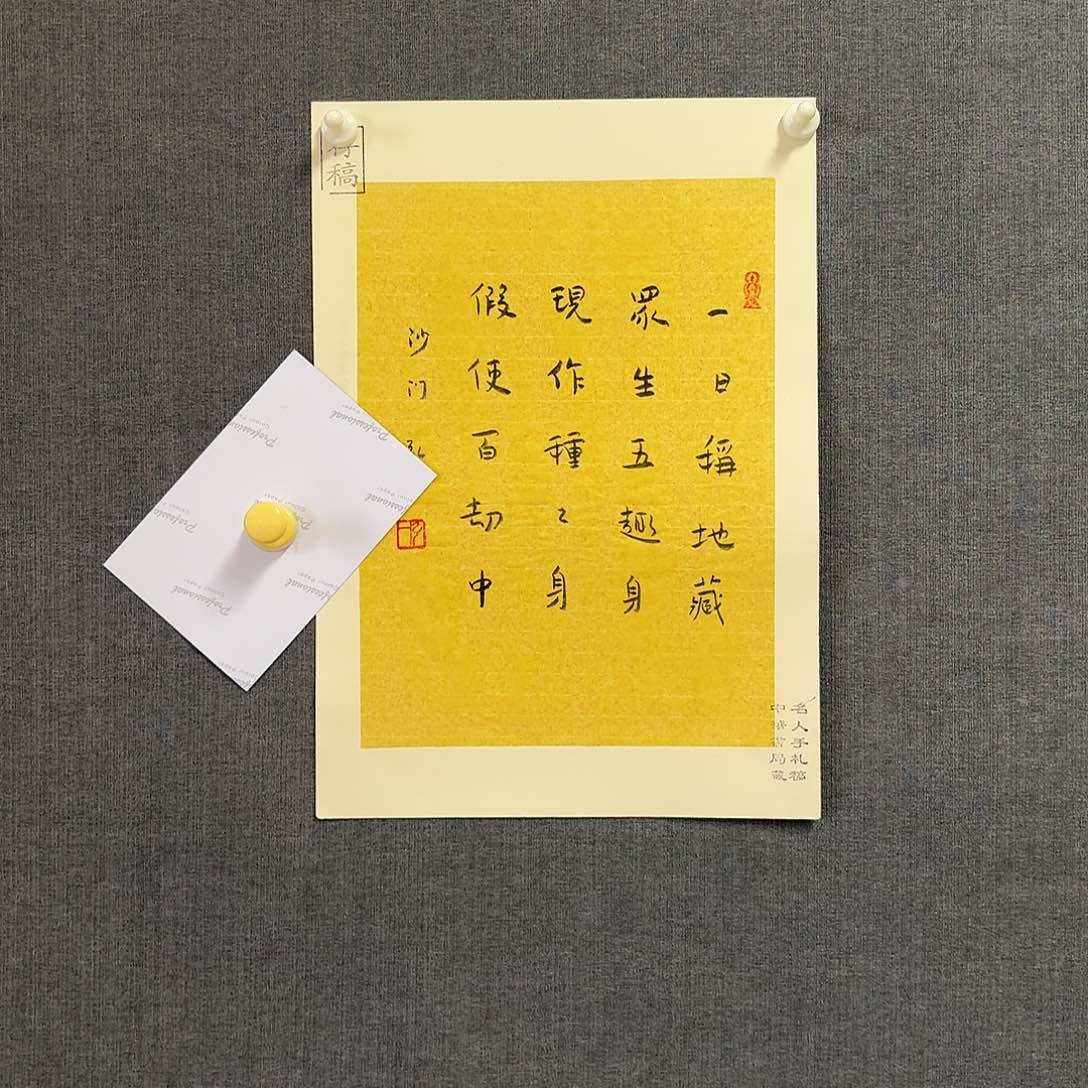 稿
一日稱地藏
眾生五趣身
現作種〻身
假使百劫中
沙门
名人手札稿
中華書局藏
Professional
Colour Paper
Professional
Colour Paper
Professional
Colour Paper
Professional
Colour Paper
Professional
Colour Paper